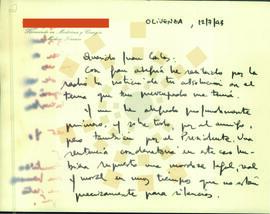 Licenciado en Medicina y Cirugía
OLIVENDA, 12/7/88
Querido Juan Carlos:
Con gran alegría he recibido por la
radio la noticia de tu absolución en el
tema que tan preocupado me tenía.
Y me he alegrado profundamente
primero y sobre todo por el amigo,
pero también por el Presidente. Una
sentencia condenatoria en este caso hu-
biera supuesto una mordaza legal, real
y moral en unos tiempos que no están
precisamente para silencios.